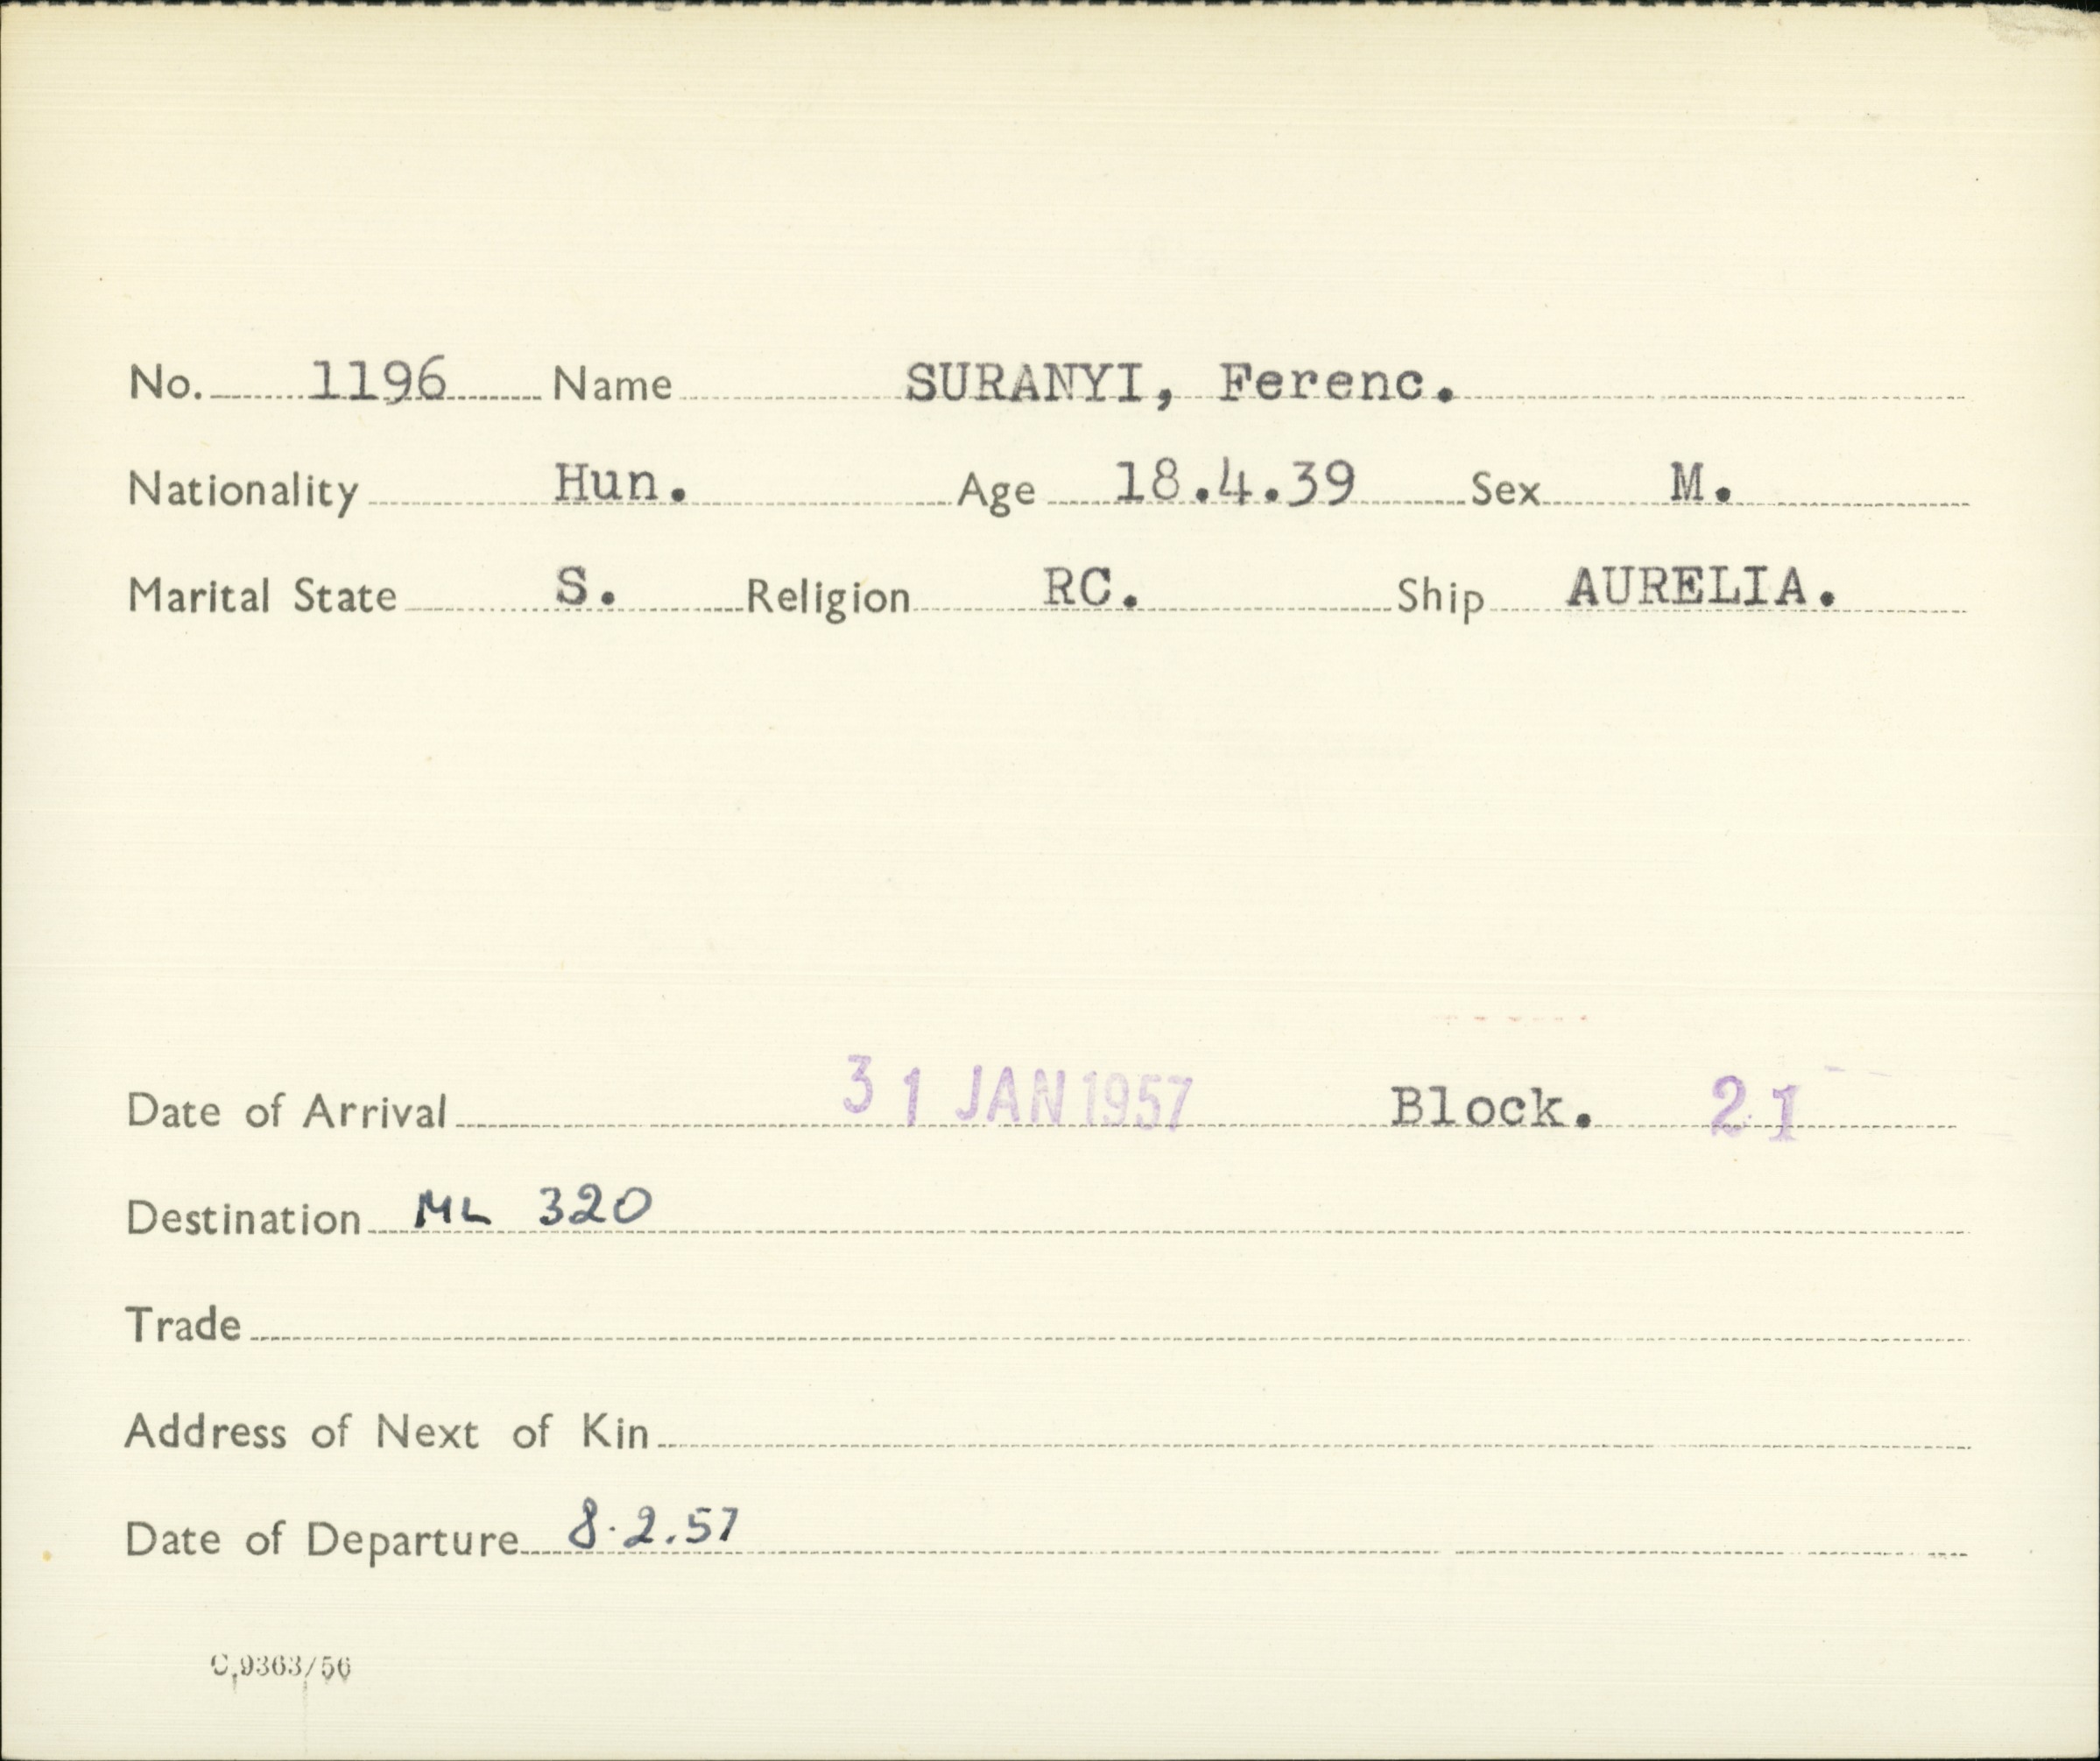 No. 1196 Name SURANYI, Ferenc.
Nationality Hun. Age 18.4.39 Sex M.
Marital State S. Religion RC. Ship AURELIA.
Date of Arrival 31 JAN 1957 Block. 21
Destination ML 320
Trade
Address of Next of Kin
Date of Departure 8.2.57
C.9363/56